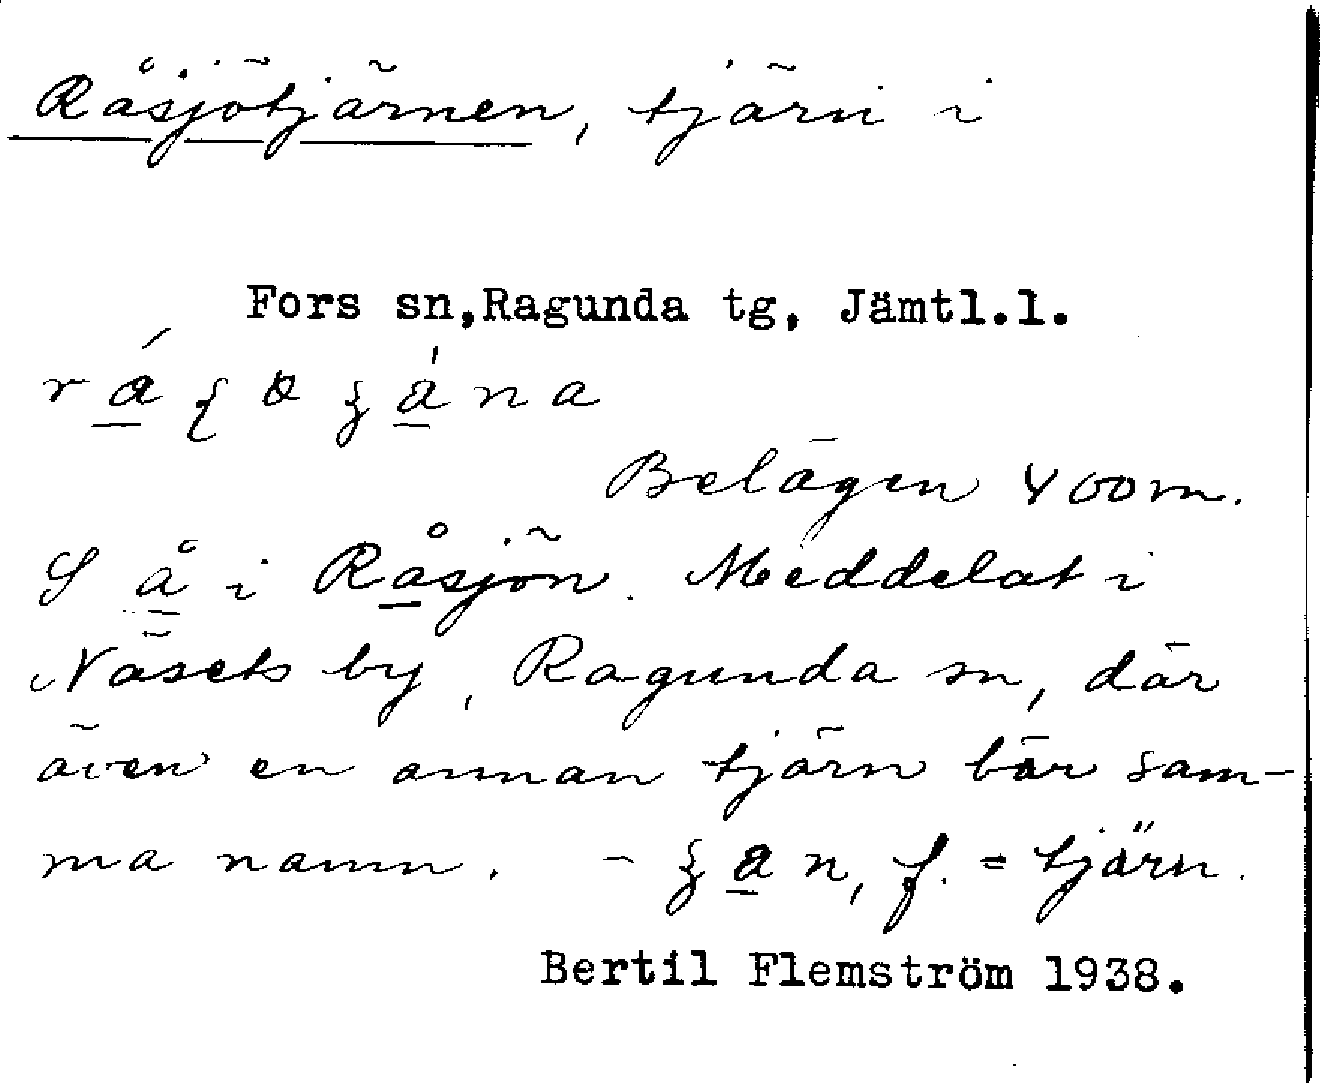 Råsjötjärnen, tjärn i
Fors sn,Ragunda tg, Jämtl.l.
Belägen 400 m.
S å i Råsjön. Meddelat i
Näsets by, Ragunda sn, där
även en annan tjärn bär sam-
ma namn. - f. = tjärn.
Bertil Flemström 1938.